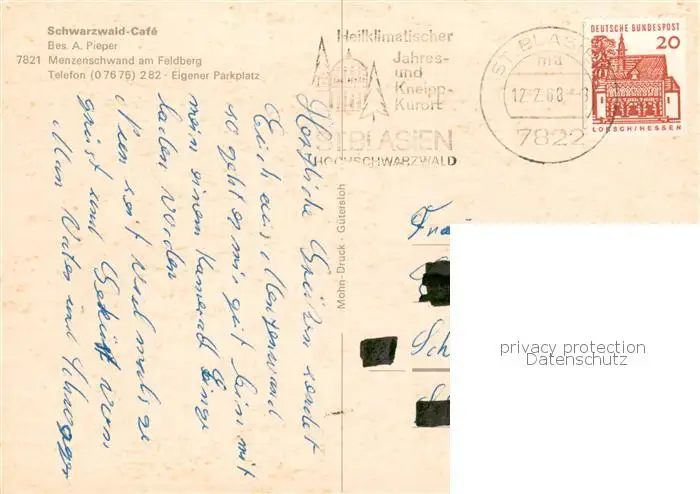 Schwarzwald-Café
Bes. A. Pieper
7821 Menzenschwand am Feldberg
Telefon (0 76 75) 2 82 · Eigener Parkplatz
Heilklimatischer
Jahres-
und
Kneipp-
Kurort
ST.BLASIEN
HOCHSCHWARZWALD
ST. BLASIEN
12.2.68
7822
DEUTSCHE BUNDESPOST
20
LORSCH/HESSEN
Mohn-Druck · Gütersloh
Herzliche Grüße sendet
Euch aus Menzenwand
so geht es mir gut bin mit
mein einem Kamerad Einge
laden worden
Nun seit vielmals ge
grüst und Geküst von
Man Vater und Schwager
Frau
Sch
privacy protection
Datenschutz